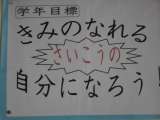 学年目標
きみのなれる
さいこうの
自分になろう!